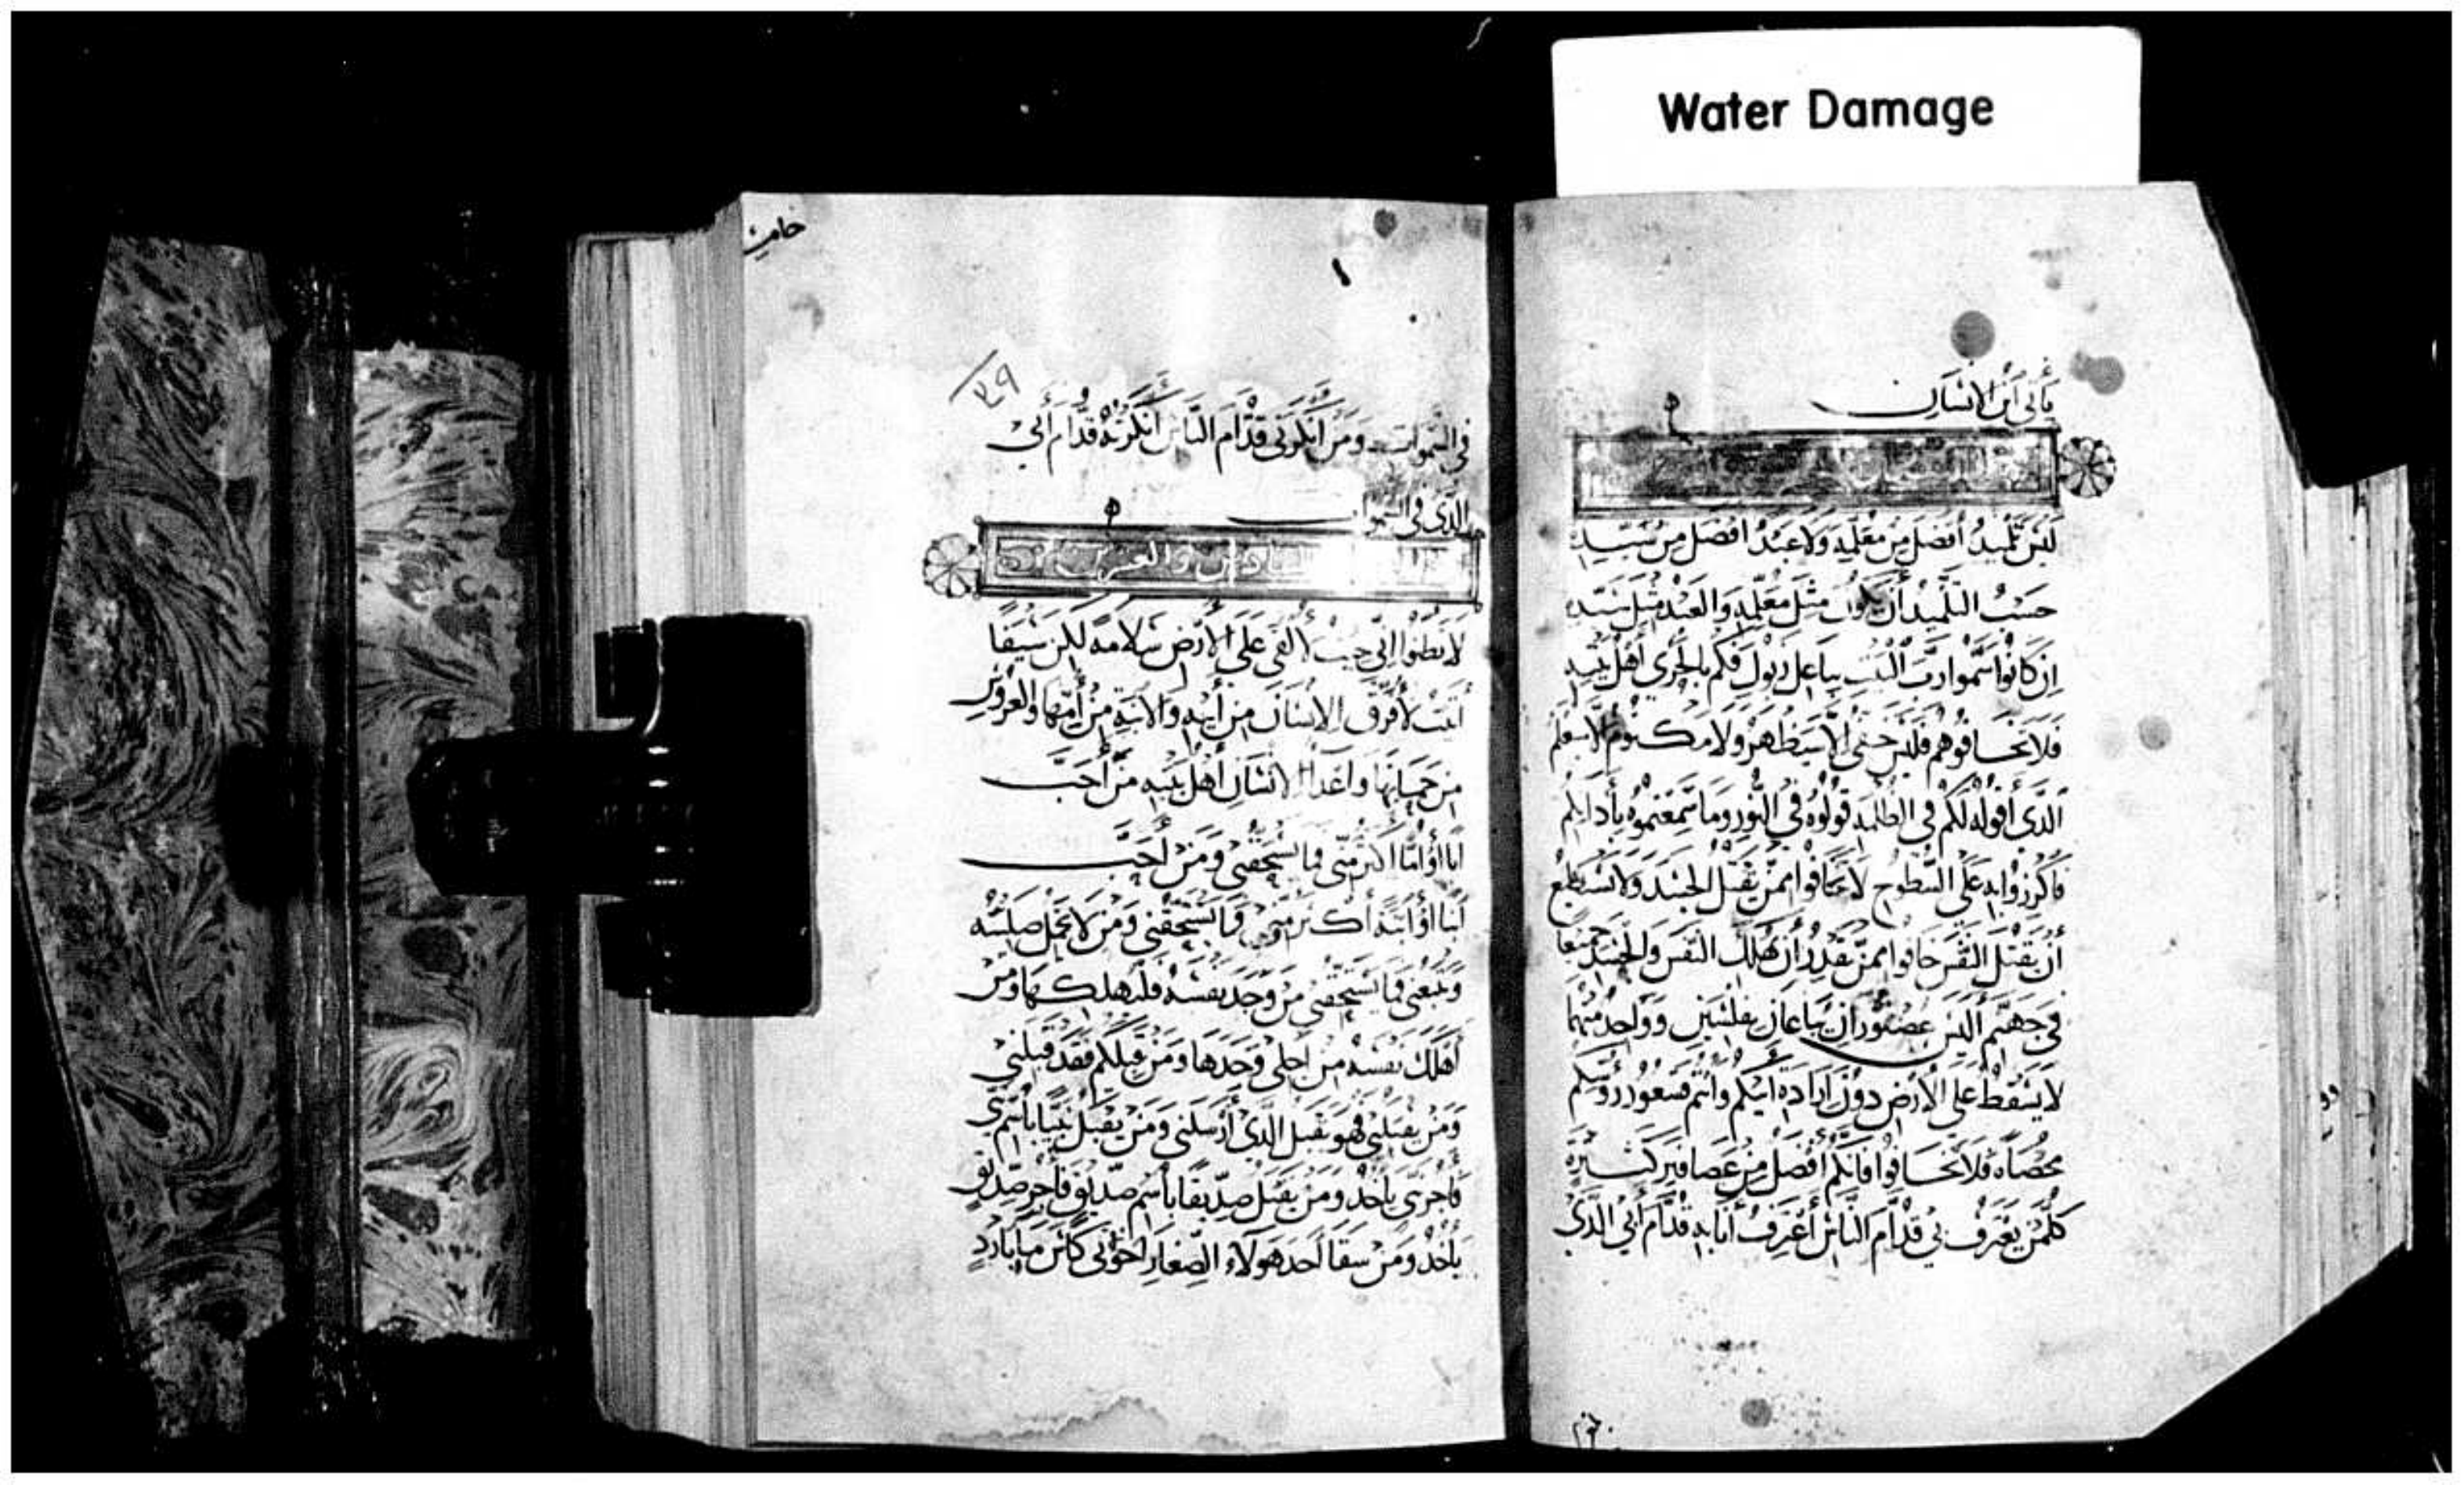 Water Damage
يأتي ابن الانسان
ليس تلميذ أفضل من معلمه ولا عبد افضل من سيده
حسب التلميذ أن يكون مثل معلمه والعبد مثل سيده
ان كانوا سموا رب البيت بباعل زبول فكم بالحري أهل بيته
فلا تخافوهم فليس خفي الا سيظهر ولا مكتوم الا سيعلم
الذي أقوله لكم في الظلمة قولوه في النور وما سمعتموه بأذانكم
فاكرزوا به على السطوح لا تخافوا ممن يقتل الجسد ولا يستطيع
أن يقتل النفس خافوا ممن يقدر أن يهلك النفس والجسد جميعا
في جهنم أليس عصفوران يباعان بفلسين وواحد منهما
لا يسقط على الأرض دون ارادة ابيكم وانتم فشعور رؤسكم
محصاه فلا تخافوا فانكم أفضل من عصافير كثيرة
كلمن يعترف بي قدام الناس أعترف أنا به قدام أبي الذي
١
٣٩
في السموات ومن انكرني قدام الناس أنكرته قدام أبي
الذي في السموات
السادس والعشرون
لا تظنوا اني جيت لألقي على الأرض سلامة لكن سيفا
أتيت لأفرق الانسان من أبيه والابنة من أمها والعروس
من حماتها واعداء الانسان أهل بيته من أحب
أبا أو اما اكثر مني فما يستحقني ومن أحب
ابنا أو ابنة أكثر مني فما يستحقني ومن لا يحمل صليبه
ويتبعني فما يستحقني من وجد نفسه فليهلكها ومن
أهلك نفسه من اجلي وجدها ومن قبلكم فقد قبلني
ومن يقبلني فهو يقبل الذي أرسلني ومن يقبل نبيا باسم نبي
فأجر نبي يأخذ ومن يقبل صديقا بأسم صديق فأجر صديق
يأخذ ومن سقا احد هولاء الصغار اخوتي كأس ما بارد